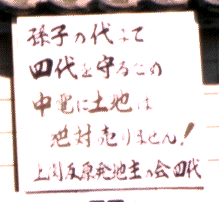 孫子の代まで
四代を守るため
中電に土地は
絶対売りません!
上関反原発地主の会四代